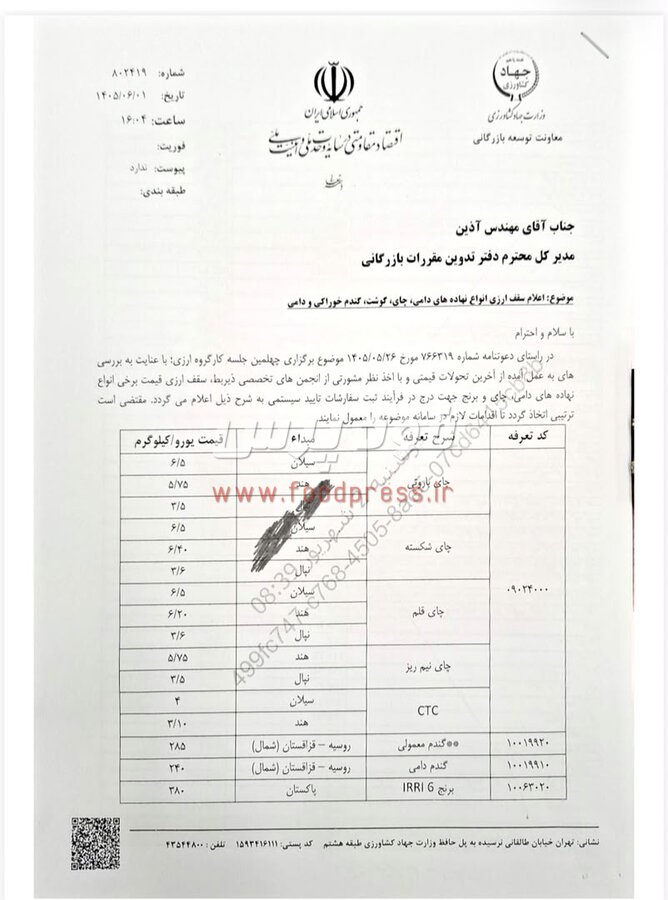 شماره: ۸۰۲۴۱۹
تاریخ: ۱۴۰۵/۰۶/۰۱
ساعت: ۱۶:۰۴
فوریت:
پیوست: ندارد
طبقه بندی:
جمهوری اسلامی ایران
اقتصاد مقاومتی در سایه وحدت ملی و امنیت ملی
جهاد
کشاورزی
وزارت جهاد کشاورزی
معاونت توسعه بازرگانی
جناب آقای مهندس آذین
مدیر کل محترم دفتر تدوین مقررات بازرگانی
موضوع: اعلام سقف ارزی انواع نهاده های دامی، چای، گوشت، گندم خوراکی و دامی
با سلام و احترام
در راستای دعوتنامه شماره ۷۶۶۳۱۹ مورخ ۱۴۰۵/۰۵/۲۶ موضوع برگزاری چهلمین جلسه کارگروه ارزی؛ با عنایت به بررسی
های به عمل آمده از آخرین تحولات قیمتی و با اخذ نظر مشورتی از انجمن های تخصصی ذیربط، سقف ارزی قیمت برخی انواع
نهاده های دامی، چای و برنج جهت درج در فرآیند ثبت سفارشات تایید سیستمی به شرح ذیل اعلام می گردد. مقتضی است
ترتیبی اتخاذ گردد تا اقدامات لازم در سامانه موضوعه را معمول نمایند.
کد تعرفه شرح تعرفه مبداء قیمت یورو/کیلوگرم
۰۹۰۲۴۰۰۰
چای باروتی سیلان ۶/۵
هند ۵/۷۵
۳/۵
چای شکسته سیلان ۶/۵
هند ۶/۴۰
نپال ۳/۶
چای قلم سیلان ۶/۵
هند ۶/۲۰
نپال ۳/۶
چای نیم ریز هند ۵/۷۵
نپال ۳/۵
CTC سیلان ۴
هند ۳/۱۰
۱۰۰۱۹۹۲۰ **گندم معمولی روسیه – قزاقستان (شمال) ۲۸۵
۱۰۰۱۹۹۱۰ گندم دامی روسیه – قزاقستان (شمال) ۲۴۰
۱۰۰۶۳۰۲۰ برنج IRRI 6 پاکستان ۳۸۰
www.foodpress.ir
نشانی: تهران خیابان طالقانی نرسیده به پل حافظ وزارت جهاد کشاورزی طبقه هشتم کد پستی: ۱۵۹۳۴۱۶۱۱۱ تلفن: ۴۳۵۴۴۸۰۰